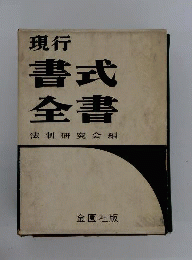 現行
書式
全書
法制研究会編
金園社版